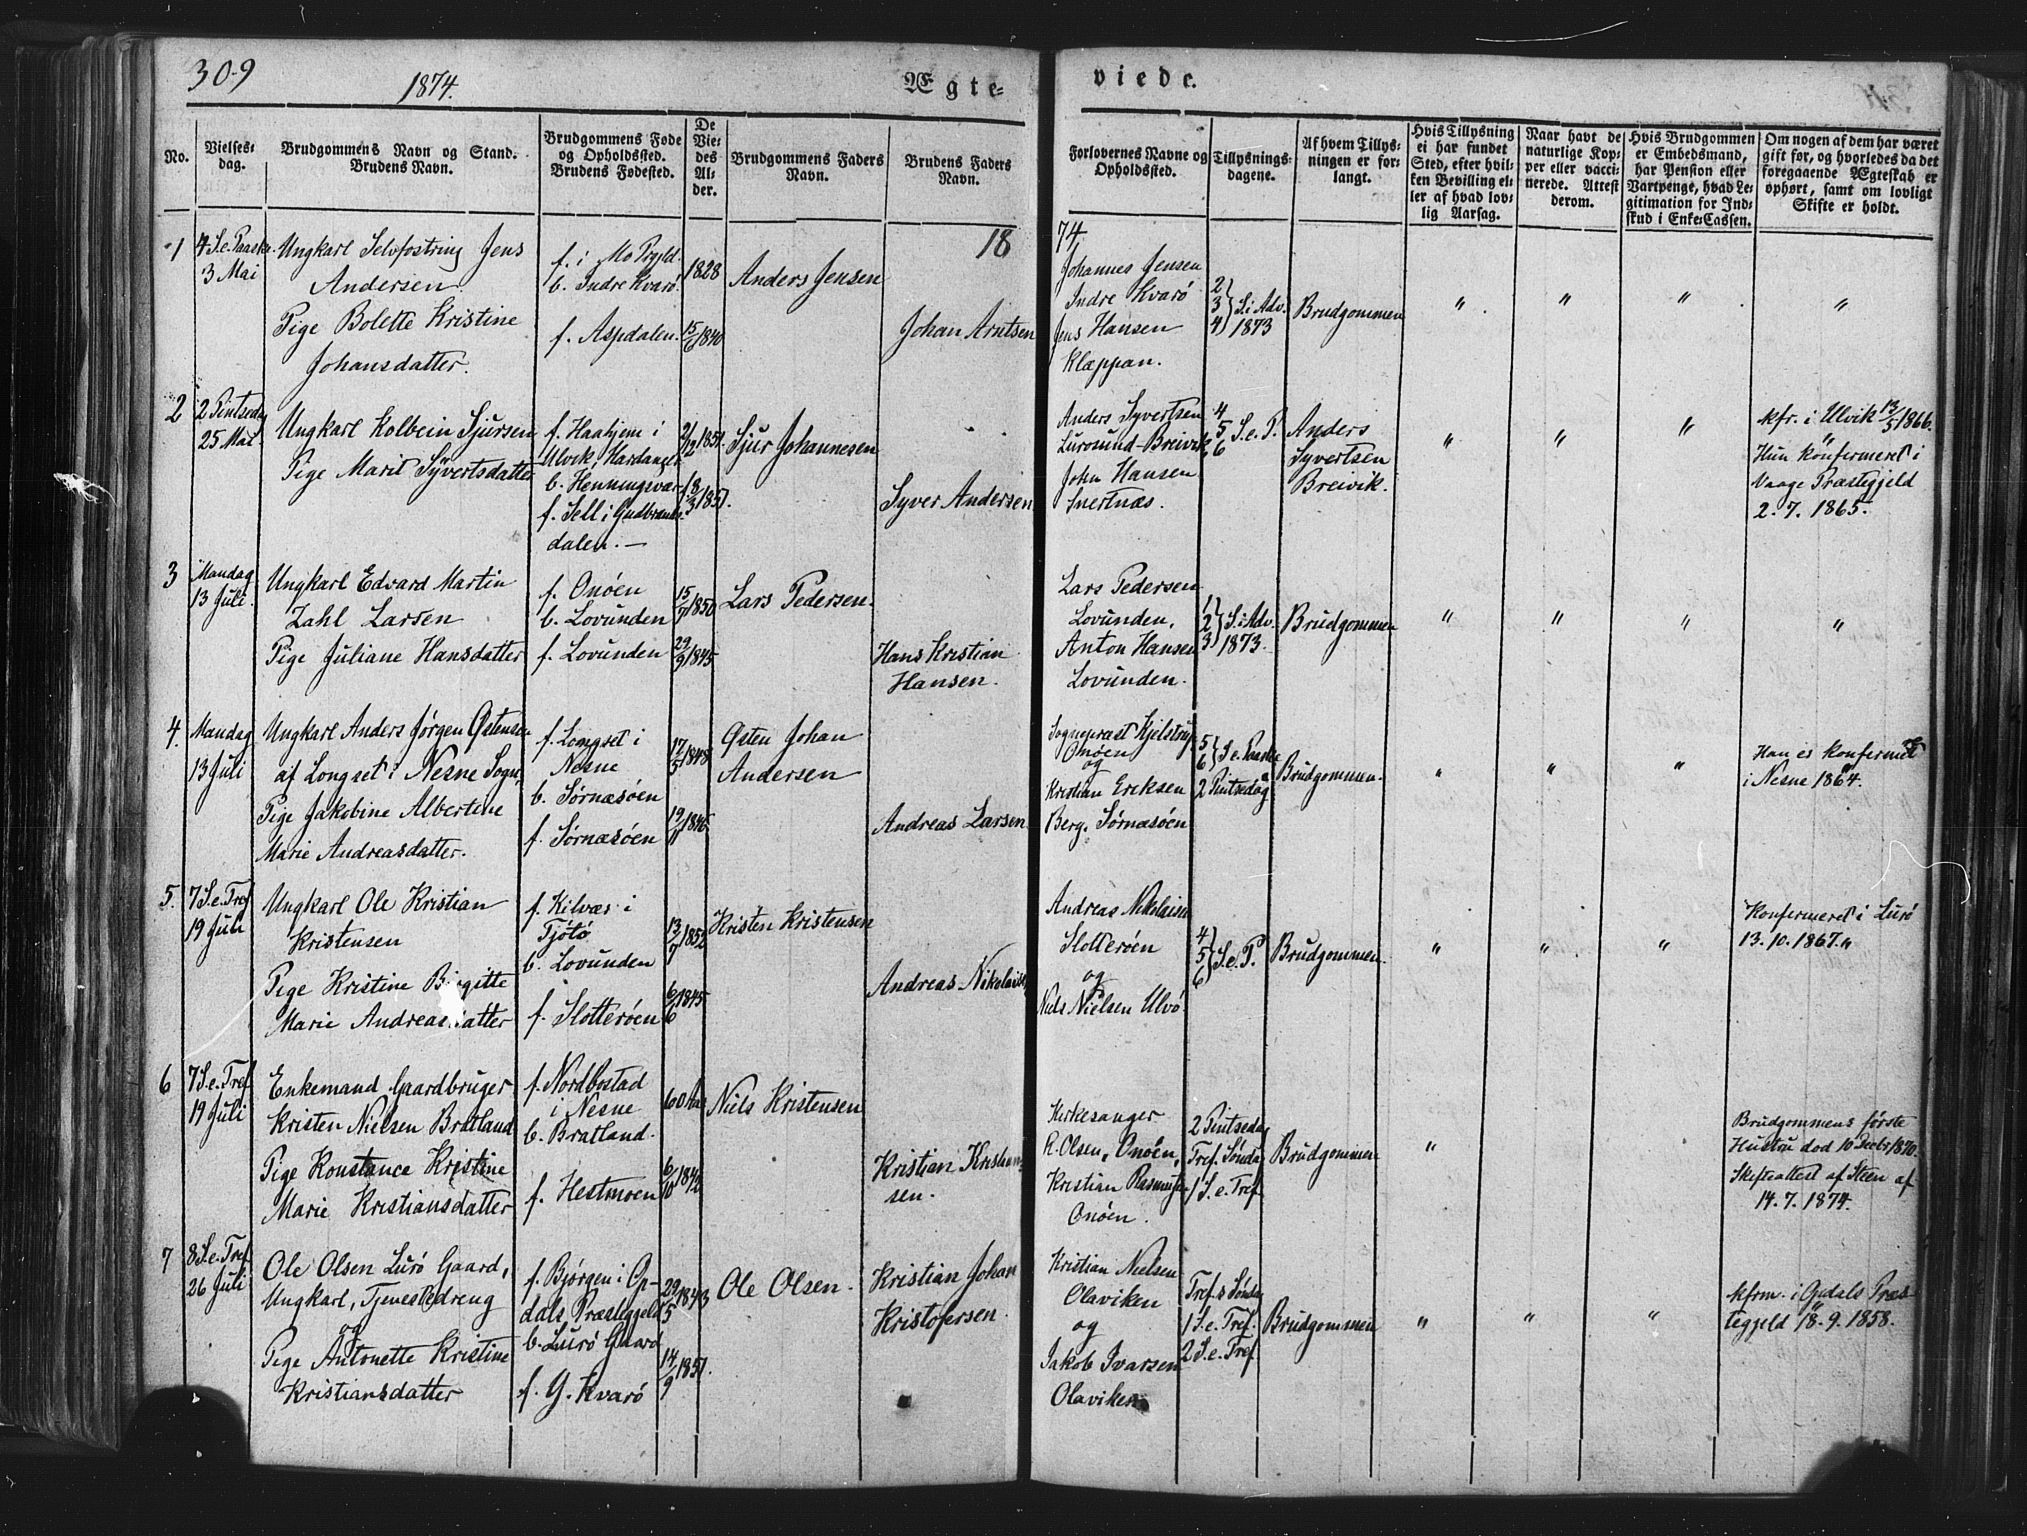 309
1874.
Ægte=
viede.
No.
Vielses=
dag.
Brudgommens Navn og Stand.
Brudens Navn.
Brudgommens Føde
og Opholdssted.
Brudens Fødested.
De
Vie=
des
Al=
der.
Brudgommens Faders
Navn.
Brudens Faders
Navn.
Forlovernes Navne og
Opholdssted.
Tillysnings=
dagene.
Af hvem Tillys=
ningen er for=
langt.
Hvis Tillysning
ei har fundet
Sted, efter hvil=
ken Bevilling el=
ler af hvad lov=
lig Aarsag.
Naar havt de
naturlige Kop=
per eller vacci=
nerede. Attest
derom.
Hvis Brudgommen
er Embedsmand,
har Pension eller
Vartpenge, hvad Le=
gitimation for Ind=
skud i Enke=Cassen.
Om nogen af dem har været
gift før, og hvorledes da det
foregaaende Ægteskab er
ophørt, samt om lovligt
Skifte er holdt.
18
74
1
4 S. e. Paaske
3 Mai
Ungkarl Selvfostring Jens
Andersen
Pige Bolette Kristine
Johansdatter.
f. i Mo Prgld.
b. Indre Kvarø
f. Aspdalen.
1828
15/6 1840
Anders Jensen
Johan Arntsen
Johannes Jensen
Indre Kvarø
Jens Hansen
Klæppan.
2
3
4 } S. i Adv.
1873
Brudgommen
" " " "
2
2 Pintsedag
25 Mai
Ungkarl Kolbein Sjursen
Pige Marit Syvertsdatter
f. Haahjem i
Ulvik Hardanger
b. Henningsvær
f. Sell i Gudbrands-
dalen. —
2/12 1851.
18/3 1851.
Sjur Johannesen
Syver Andersen
Anders Syvertsen
Lurosund-Breivik
John Hansen
Snertnæs.
4
5 S. e. P.
6
Anders
Syvertsen
Breivik.
" " "
kfr. i Ulvik 13/5 1866.
Hun konfermeret i
Vaage Præstegjeld
2. 7. 1865.
3
Mandag
13 Juli.
Ungkarl Edvard Martin
Zahl Larsen
Pige Juliane Hansdatter
f. Onøen
b. Lovunden
f. Lovunden
15/7 1850
29/9 1845
Lars Pedersen.
Hans Kristian
Hansen.
Lars Pedersen
Lovunden,
Anton Hansen
Lovunden.
1
2
3 } S. i Adv.
1873.
Brudgommen
" " " "
4.
Mandag
13 Juli
Ungkarl Anders Jørgen Østensen
af Longset i Nesne Sogn,
Pige Jakobine Albertine
Marie Andreasdatter.
f. Longset i
Nesne
b. Sørnæsøen
f. Sørnæsøen
17/5 1848
19/11 1846
Østen Johan
Andersen
Andreas Larsen.
Sognepræst Kjelstrup
Onøen
og
Kristian Eriksen
Berg. Sørnæsøen
5
6 } S. e. Paaske
2 Pintsedag
Brudgommen.
" " "
Han er konfermet
i Nesne 1864.
5.
7 S. e. Tref
19 Juli
Ungkarl Ole Kristian
Kristensen
Pige Kristine Birgitte
Marie Andreasdatter
f. Kilvær i
Tjøtø
b. Lovunden
f. Slotterøen
13/7 1852
6/6 1845
Kristen Kristensen
Andreas Nikolaisen
Andreas Nikolaisen
Slotterøen
og
Niels Nielsen Ulvø
4
5
6 } S. e. P.
Brudgommen.
" " "
Konfermeret i Lurø
13. 10. 1867. "
6
7 S. e. Tref
19 Juli
Enkemand Gaardbruger
Kristen Nielsen Bratland
Pige Konstance Kristine
Marie Kristiansdatter
f. Nordbostad
i Nesne
b. Bratland.
f. Hestmoen
60 Aar
6/10 1842
Niels Kristensen
Kristian Kristian-
sen.
Kirkesanger
R. Olsen, Onøen,
Kristian Rasmusen
Onøen.
2 Pintsedag
Tref. Søndag
1 S. e. Tref.
Brudgommen
"
Brudgommens første
Hustru død 10 Decbr 1870.
Skifteattest af Steen af
14. 7. 1874.
7
8 S. e. Tref
26 Juli
Ole Olsen Lurø Gaard,
Ungkarl, Tjenestedreng
og
Pige Antonette Kristine
Kristiansdatter
f. Bjørgen i Op-
dals Præstegjeld
b. Lurø Gaard
f. G. Kvarø
29/5 1843
14/9 1851.
Ole Olsen.
Kristian Johan
Kristofersen.
Kristian Nielsen
Olaviken
og
Jakob Ivarsen
Olaviken
Tref. s Søndag
1 S. e. Tref.
2 S. e. Tref
Brudgommen
" " "
kfrm. i Opdals Præs
tegjeld 18. 9. 1858.